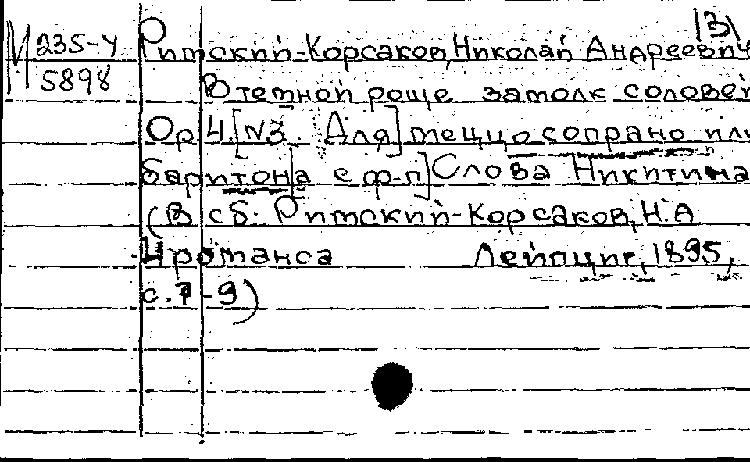 (3)
М 235-4 Римский-Корсаков, Николай Андреевич
5898 В темной роще замолк соловей
Op 4. [№3. Для] меццо сопрано или
баритона [с ф-п] Слова Никитина
(В сб: Римский-Корсаков, Н.А
4 романса Лейпциг, 1895,
с.7-9)